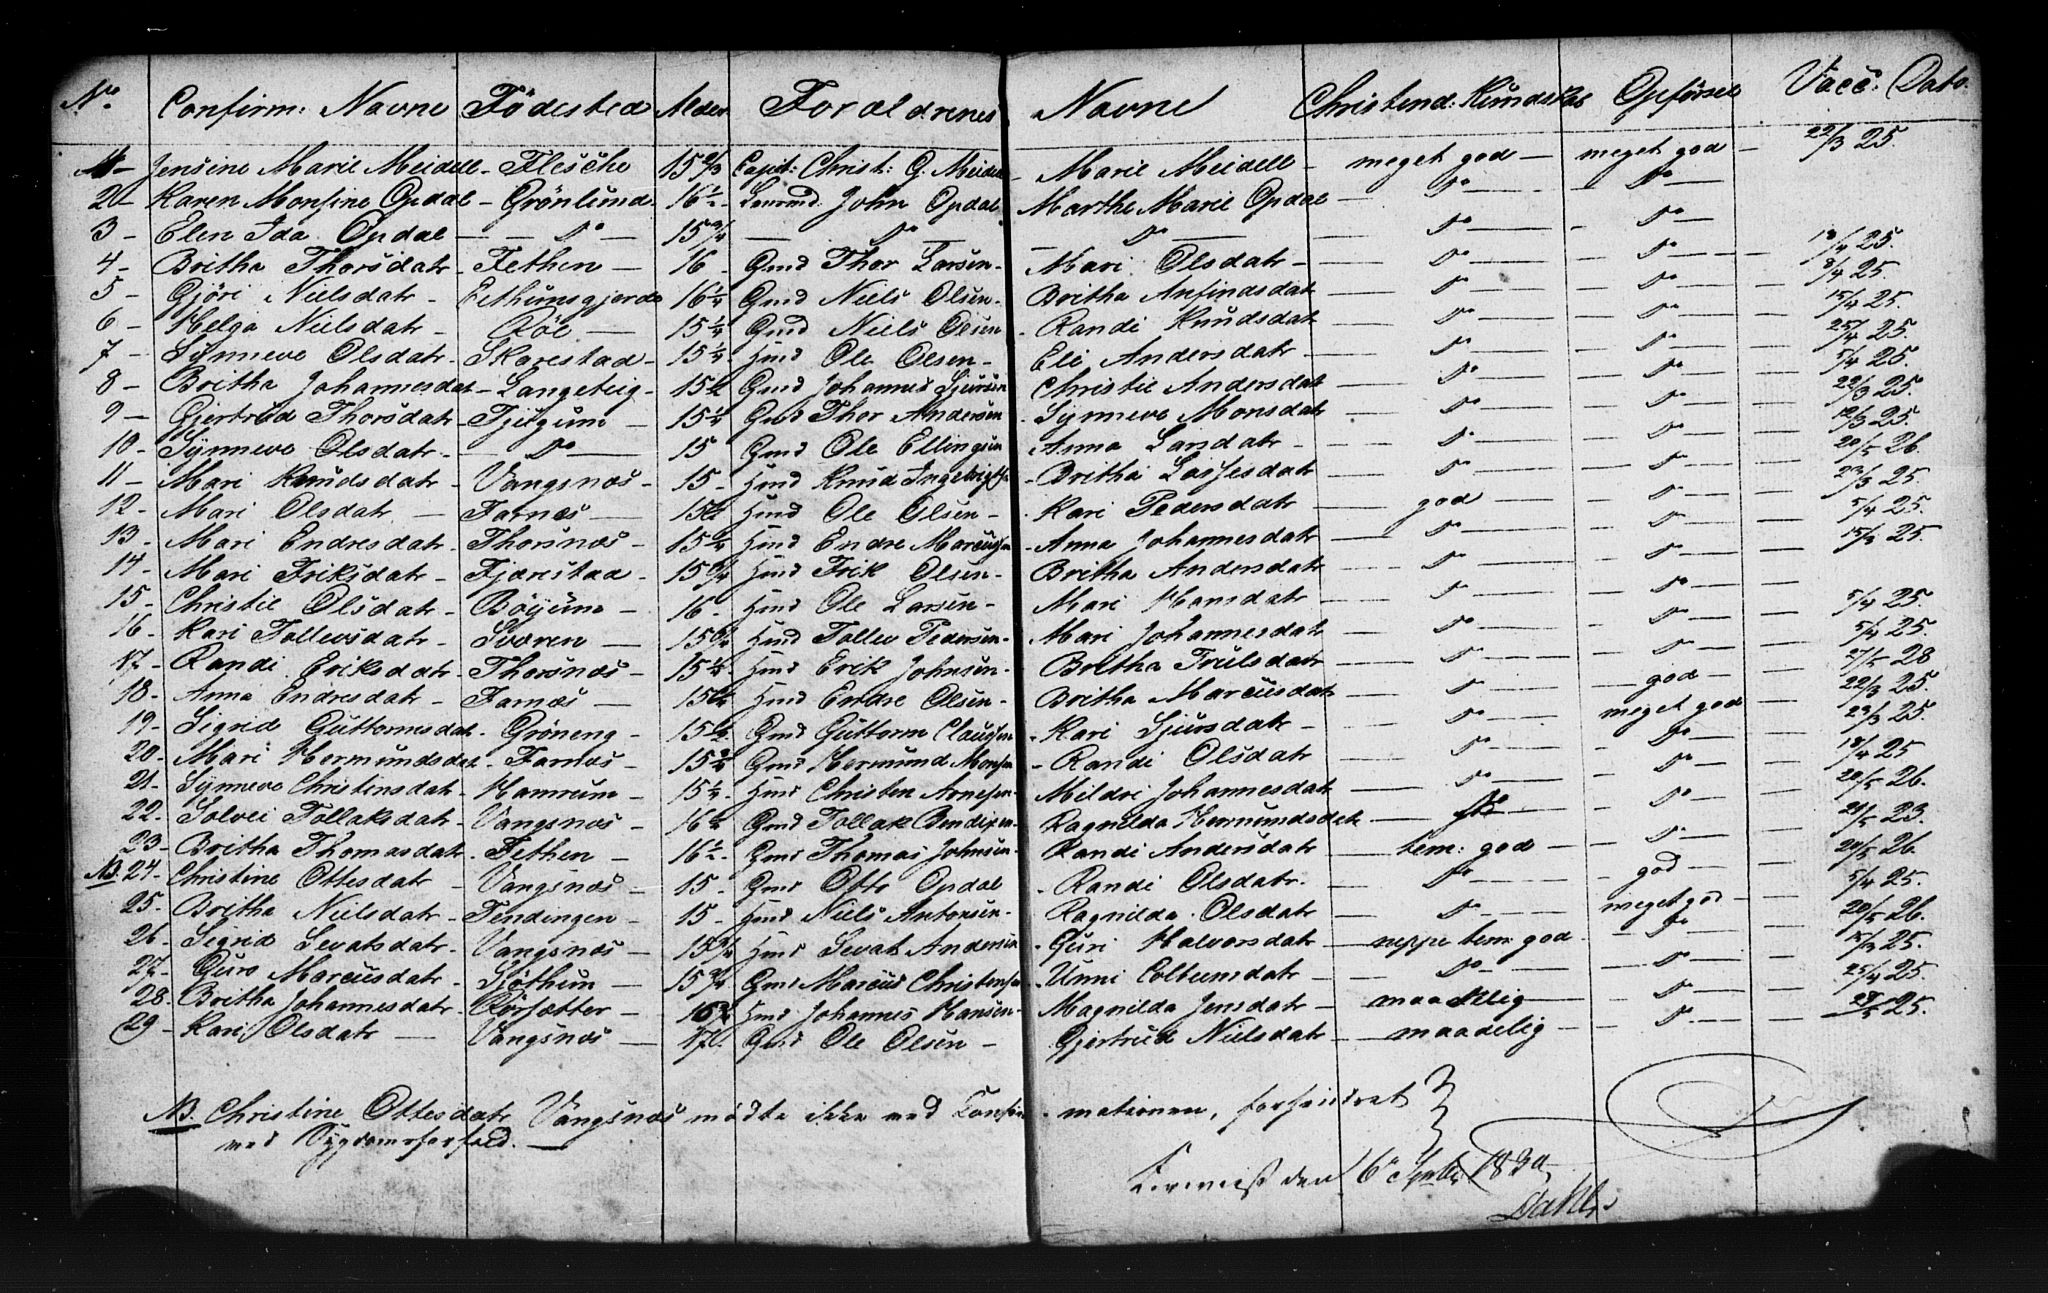 No. Confirm: Navne Födested Alder Forældrenes Navne Christend: Kundskab Opførsel Vacc: Dato.
1 - Jensine Marie Meidell - Flesche 15 2/3 Capit: Christ: G. Meidell - Marie Meidell - meget god - meget god - 22/3 25.
2 - Karen Monsine Opdal - Grönlund 16 1/2 John Opdal Marthe Marie Opdal - Do - Do -
3 - Elen Ida Opdal - Do - 15 3/4 - Do - Do - Do - Do
4 - Britha Thorsdatr - Fethen - 16 - Gmd Thor Larsen - Mari Olsdatr - Do - Do - 18/4 25.
5 - Gjöri Nielsdatr - 16 1/4 Gmd Niels Olsen - Britha Anfindsdatr - Do - Do - 8/4 25.
6 - Helga Nielsdatr - 15 1/4 Gmd Niels Olsen - Randi Knudsdatr - Do - Do - 15/4 25.
7 - Synneve Olsdatr - Skarestad - 15 1/4 Hmd Ole Olsen - Eli Andersdatr - Do - Do - 25/4 25.
8 - Britha Johannesdatr - Langeteig - 15 1/2 Gmd Johannes Sjursen Christie Andersdatr - Do - Do - 5/4 25.
9 - Gjertrud Thorsdatr - Tjugum - 15 1/4 Gmd Thor Andersen - Synneve Monsdatr - Do - Do - 22/3 25.
10 - Synneve Olsdatr - Do - 15 Gmd Ole Ellingsen Anna Larsdatr - Do - Do - 12/3 25.
11 - Mari Knudsdatr - Vangsnæs - 15 - Hmd Knud Ingebrigtsen - Britha Lassesdatr - Do - Do - 20/5 26.
12 - Mari Olsdatr - Farnæs - Hmd Ole Olsen - Kari Pedersdatr - god - Do - 23/3 25.
13 - Mari Endresdatr - Thorsnæs - 15 1/4 Hmd Endre Marcussen - Anna Johannesdatr - Do - Do - 5/4 25.
14 - Mari Friksdatr - Fjærestad - 15 3/4 Hmd Frik Olsen - Britha Andersdatr - Do - Do - 25.
15 - Christie Olsdatr - Böyum - 16 - Hmd Ole Larsen - Mari Hansdatr - Do - Do -
16 - Kari Tollevsdatr - Sværen - Hmd Tollev Pedersen - Mari Johannesdatr - Do - Do - 5/4 25.
17 - Randi Eriksdatr - Thorsnæs - 15 1/4 Hmd Erik Johnsen - Britha Trulsdatr - Do - Do - 5/4 25.
18 - Anna Endresdatr - Farnæs - Hmd Endre Olsen - Britha Marcusdatr - Do - god - 28
19 - Sigrid Guttormsdatr - Gröneng - 15 1/2 Gmd Guttorm Claussen - Kari Sjursdatr - Do - meget god - 22/3 25.
20 - Mari Hermundsdatr - Farnæs - 15 3/4 Gmd Hermund Monsen - Randi Olsdatr - Do - Do - 23/3 25.
21 - Synneve Christensdatr - Hamrum - 15 1/4 Hmd Christen Arnesen - Mildri Johannesdatr - Do - Do - 18/4 25
22 - Solvei Tollaksdatr - Vangsnæs - 16 1/2 Gmd Tollak Bendixen - Ragnilda Hermundsdatr - Do - Do - 20/5 26.
23 - Britha Thomasdatr - Fethen - 16 1/2 - Gmd Thomas Johnsen - Randi Andersdatr - tem: god - Do - 23.
NB. 24 - Christine Ottesdatr - Vangsnæs - 15 - Gmd Otto Opdal - Randi Olsdatr. Do - god - 20/5 26
25 - Britha Nielsdatr - Tendingen - 15 - Hmd Niels Antonsen - Ragnilda Olsdatr Do - meget god - 5/4 25.
26 - Sigrid Sevatsdatr - Vangsnæs - 15 3/4 Hmd Sevat Andersen - Guri Halvorsdatr - neppe tem: god - Do - 20/5 26.
27 - Guro Marcusdatr - Sjöthun - 15 3/4 Gmd Marcus Christensen - Unni Colbensdatr - Do - Do - 25.
28 - Britha Johannesdatr - Rörsætter - Hmd Johannes Hansen - Magnilda Jensdatr - maadelig - Do - 25/4 25.
29 - Kari Olsdatr - Vangsnæs - 17 Gmd Ole Olsen - Gjertrud Nielsdatr - maadelig - Do - 25.
NB. Christine Ottesdatr Vangsnæs mödte ikke ved Confirmationen, forhindret
ved Sygdomsforfald.
den 16 1830
Dahl